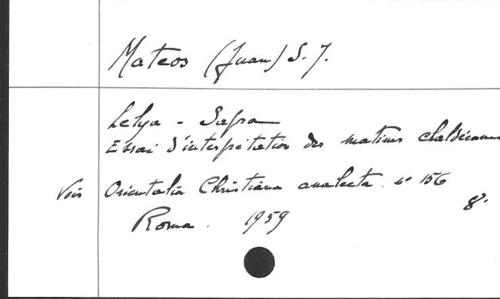 Mateos (Juan) S. J.
Lelya - Sapra
Essai d'interprétation des matines chaldéennes
Voir Orientalia Christiana analecta. n° 156
8°.
Roma. 1959